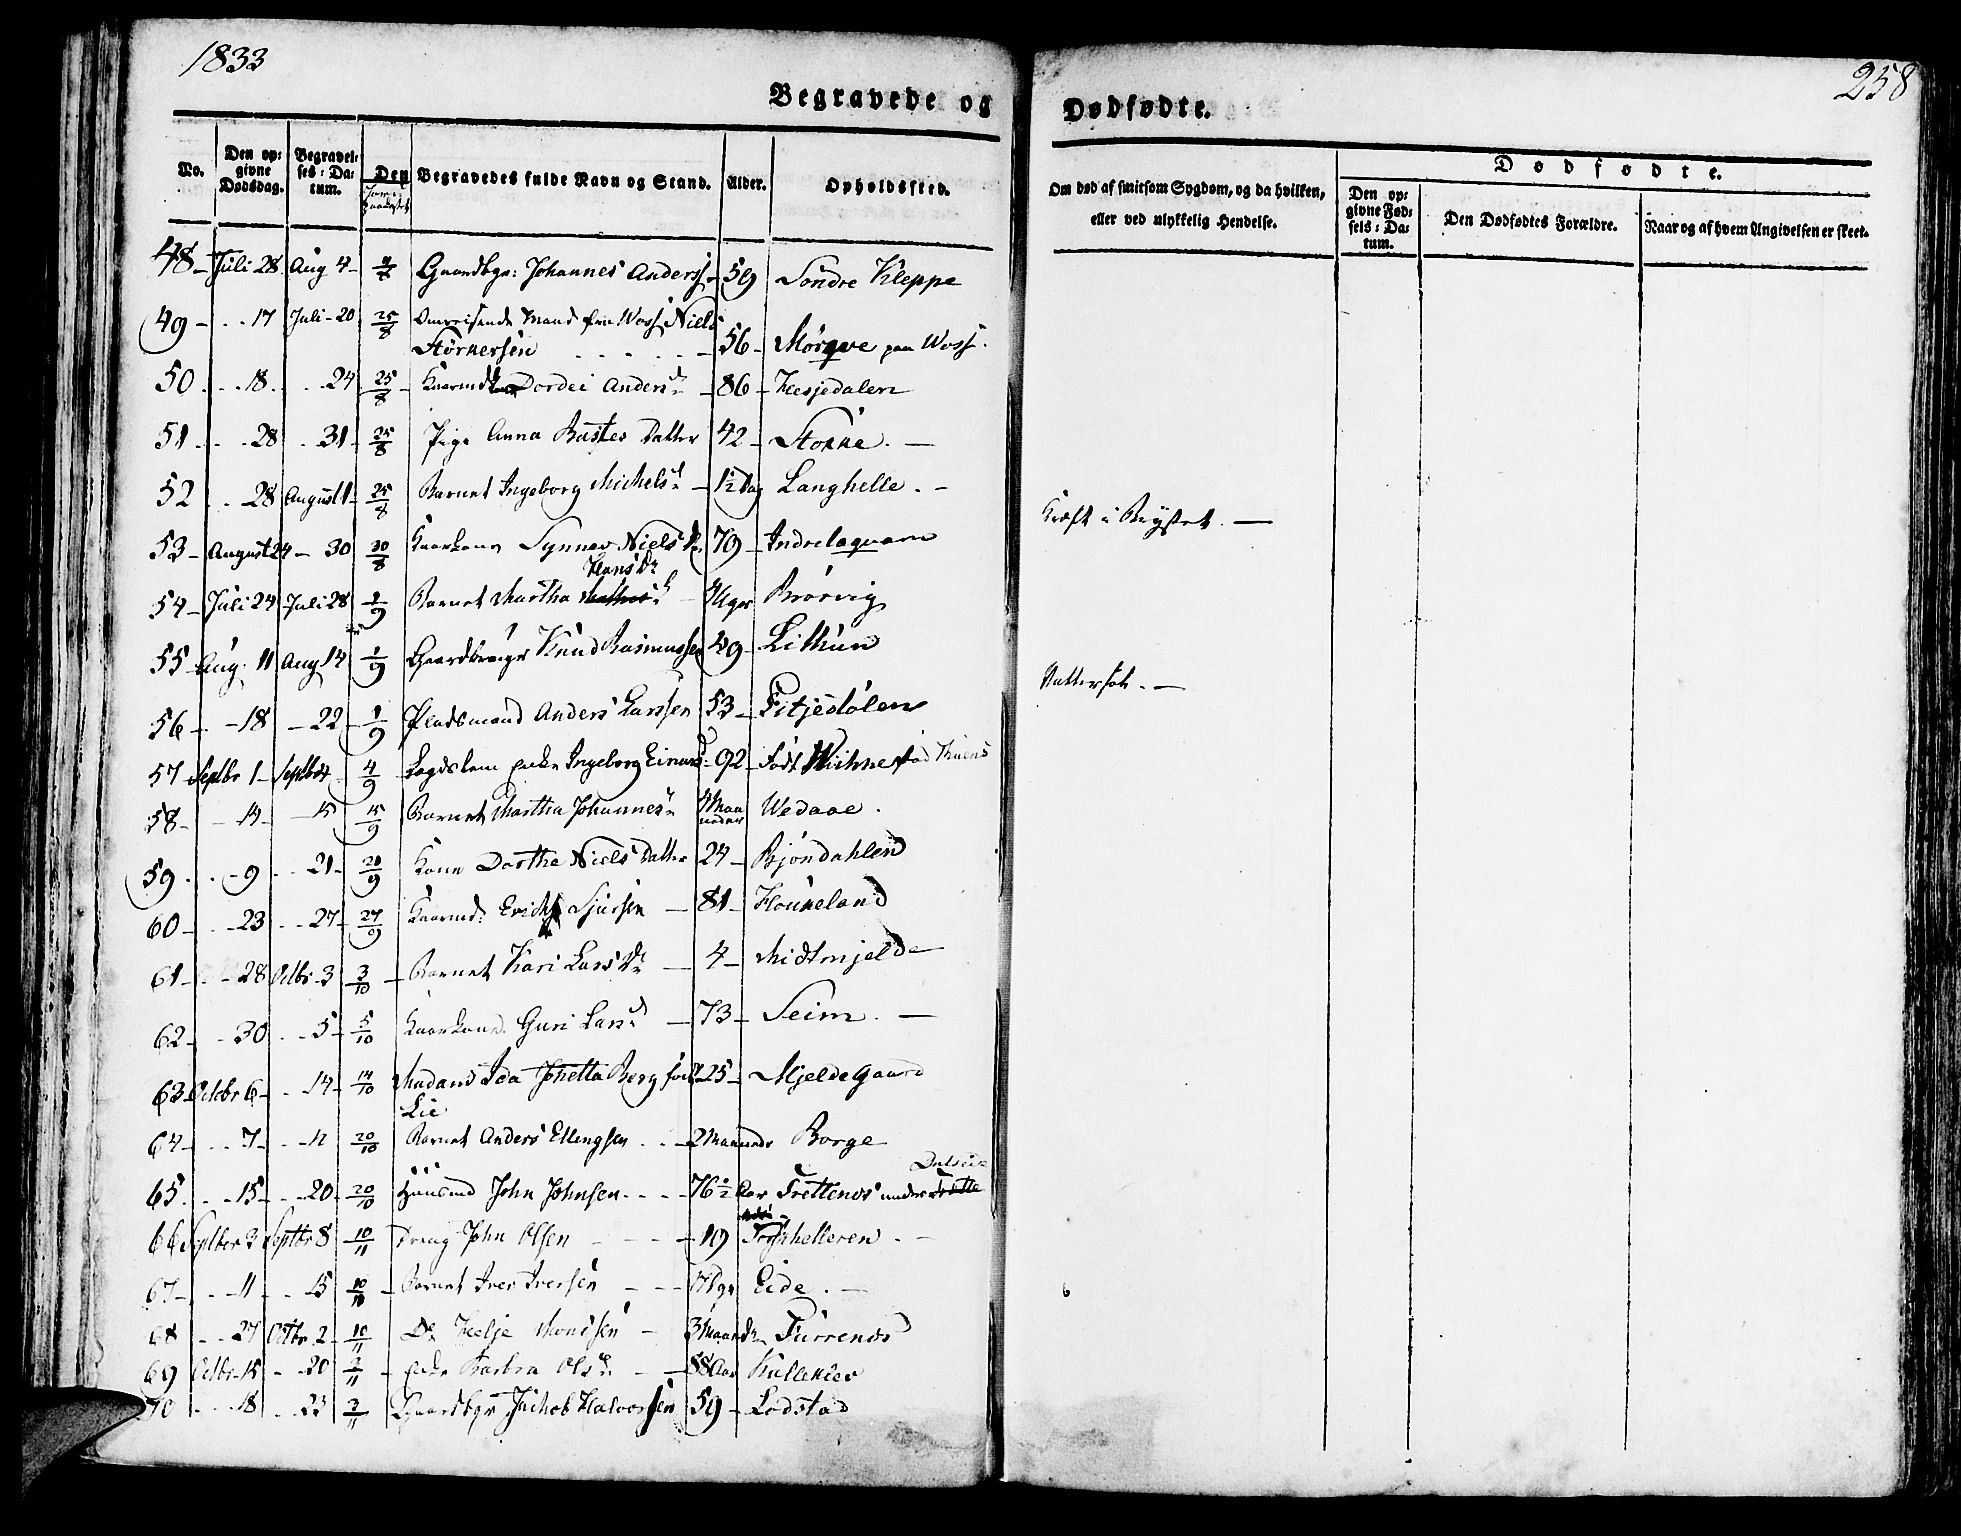 1833
258
Begravede og Dødfødte.
No. | Den opgivne Dødsdag. | Begravelses-Datum. | Den Jordpaakastet | Begravedes fulde Navn og Stand. | Alder. | Opholdssted. | Om død af smitsom Sygdom, og da hvilken, eller ved ulykkelig Hendelse. | Dødfødte.
Den opgivne Fødsels-Datum. | Den Dødfødtes Forældre. | Naar og af hvem Angivelsen er skeet.
48 - Juli 28 Aug 4 - 4/8 Gaardbgr: Johannes Anderss - 59 Søndre Kleppe
49 - - 17 Juli - 20 25/8 Omreisende Mand fra Woss Niels
Størkersen - 56 - Mørqve paa Woss.
50 - 18 - 24 25/8 Kaarmdk Dordei Andersd - 86 - Hesjedalen
51 - 28 - 31 - 25/8 Pige Anna Datter 42 - Støkke. -
52 - 28 August 1 - 25/8 Barnet Ingeborg Michelsd - 1½ Dag Langhelle. -
53 - August 24 - 30 30/8 Kaarkone Synnev Niels D 79 - Indrelaqvam Kræft i Brystet. -
Hans Dr
54 - Juli 24 Juli 28 1/9 Barnet Martha - Brørvig
55 Aug. 11 Aug 14 1/9 Gaardbruger Knud Rasmussen 49 - Lithun
56 - 18 - 22 - 1/9 Pladsmand Anders Larssen 53 - Fitjestølen Vattersot. -
57 Septbr 1 - Septbr 4 4/9 Lægdslem Enke Ingeborg Einard - 92 - født
58 - 14 - 15 15/9 Barnet Martha Johannesd 4 Maaneder Wedaae.
59 - 9 - 21 - 20/9 Kone Dorthe Niels Datter 24 - Bjøndahlen
60 - 23 - 27 - 27/9 Kaarmd: Erich Sjursen - 81 - Houkeland
61 - 28 Octbr 3 3/10 - Barnet Kari Lars Dr - 4 - Midtmjelde
62 - 30 - 5 - 5/10 Kaarkone Guri Larsd - 73 - Seim. -
63 Octobr 6 - 14 - 14/10 Madame Ida Jhetta Berg født 25 - Mjeldegaard
Lie
64 - 7 - 12 20/10 Barnet Anders Ellingsen - 2 Maaneder Borge
Dalseid
65 - 15 - 20 - 20/10 Huusmd John Johnsen - 76½ Aar Trettenes under
66 Septber 3 Septbr 8 10/11 Dreng John Olsen - 19 helleren. -
67 - 11 - 15 10/11 - Barnet Iver Iversen - Eide. -
68 - 27 Octbr 2 - 10/11 Do Helje Monssen - 3 Maaneder Furrenes
69 Octbr 15 - 20 2/11 - Enke Barbra Olsdr - 88 Aar Kalleklev
70 - 18 - 23 2/11 Gaardbgr Jachob Halvorsen 59 - Lodstad